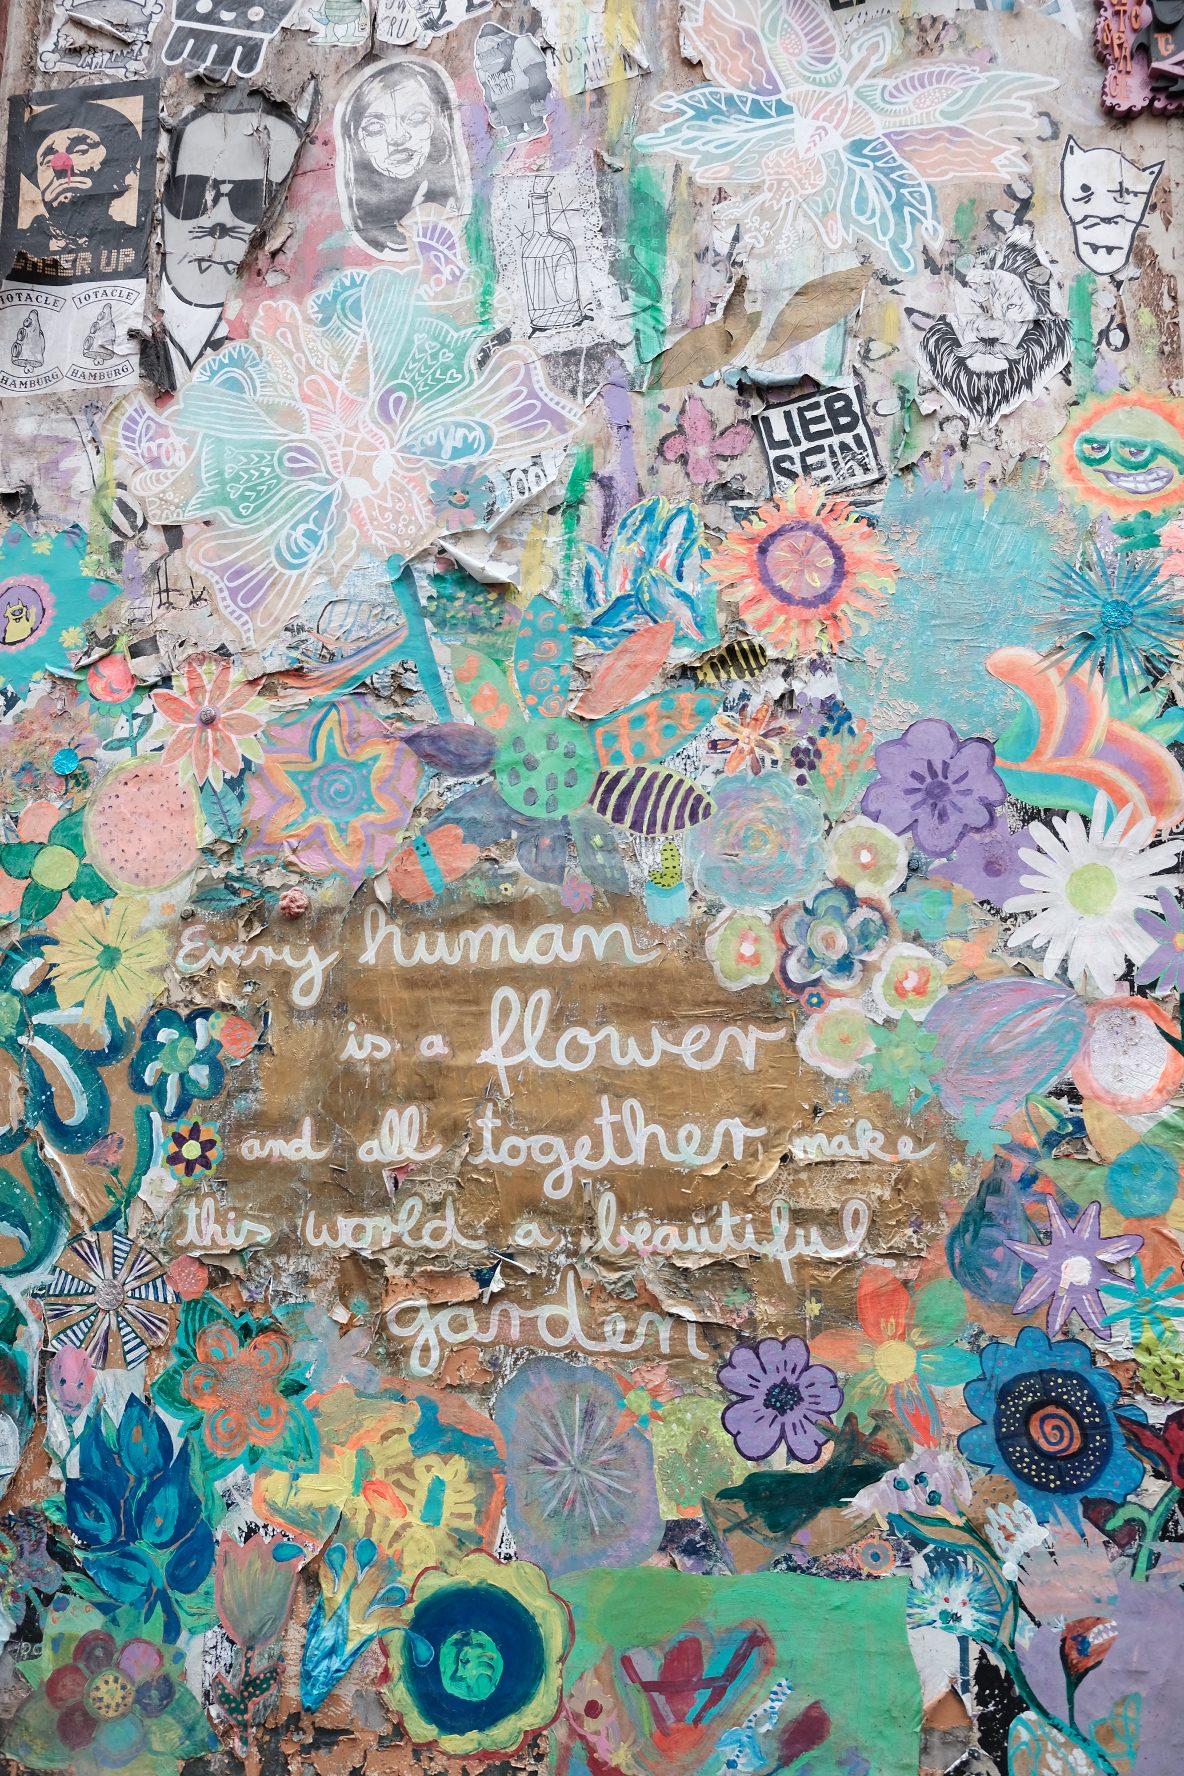 IOTACLE IOTACLE
HAMBURG HAMBURG
LIEB
SEIN
Every human
is a flower
and all together make
this world a beautiful
garden